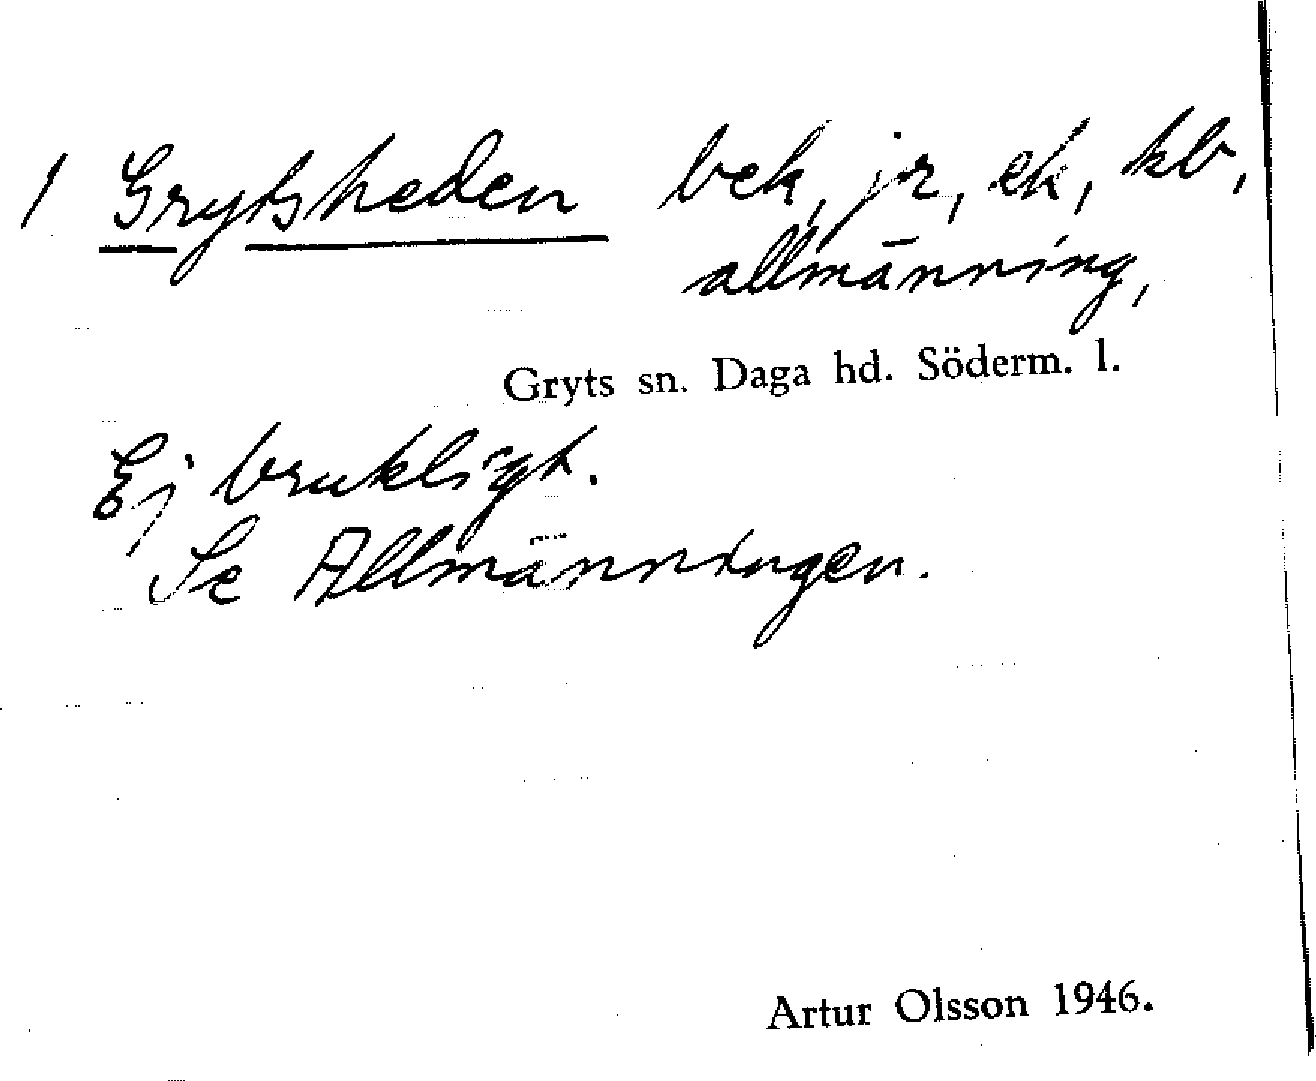 1 Grytsheden bek, jr, ek, kb,
allmänning,
Gryts sn. Daga hd. Söderm. l.
Ej brukligt.
Se Allmänningen.
Artur Olsson 1946.